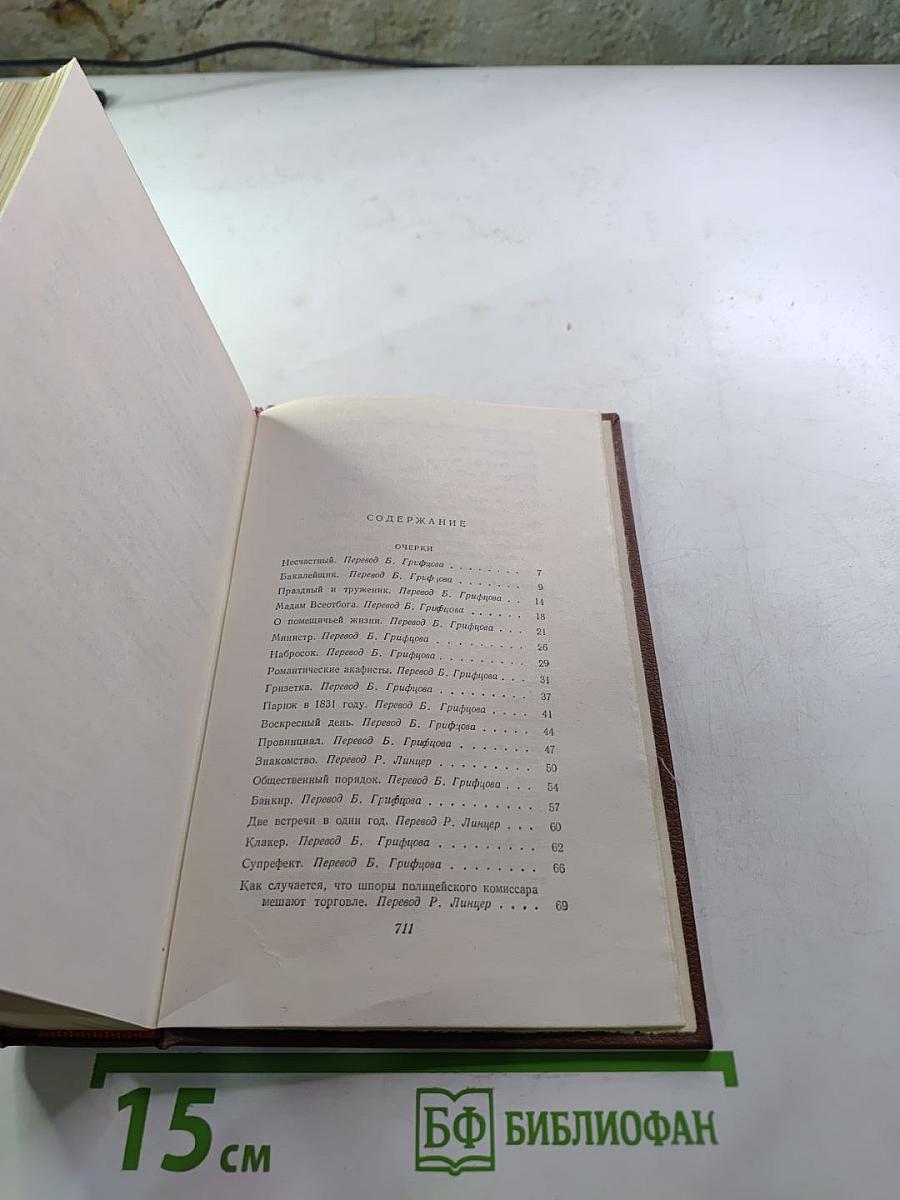 СОДЕРЖАНИЕ
ОЧЕРКИ
Несчастный. Перевод Б. Грифцова . . . . . . . . 7
Бакалейщик. Перевод Б. Грифцова . . . . . . . 9
Праздный и труженик. Перевод Б. Грифцова . . 14
Мадам Всеотбога. Перевод Б. Грифцова . . . . . . 18
О помещичьей жизни. Перевод Б. Грифцова . . . 21
Министр. Перевод Б. Грифцова . . . . . . . . . 26
Набросок. Перевод Б. Грифцова . . . . . . . . . 29
Романтические акафисты. Перевод Б. Грифцова . . . 31
Гризетка. Перевод Б. Грифцова . . . . . . . . . 37
Париж в 1831 году. Перевод Б. Грифцова . . . . 41
Воскресный день. Перевод Б. Грифцова . . . . . 44
Провинциал. Перевод Б. Грифцова . . . . . . . 47
Знакомство. Перевод Р. Линцер . . . . . . . . . 50
Общественный порядок. Перевод Б. Грифцова . . . 54
Банкир. Перевод Б. Грифцова . . . . . . . . . . 57
Две встречи в один год. Перевод Р. Линцер . . . 60
Клакер. Перевод Б. Грифцова . . . . . . . . . 62
Супрефект. Перевод Б. Грифцова . . . . . . . . 66
Как случается, что шпоры полицейского комиссара
мешают торговле. Перевод Р. Линцер . . . . 69
711
15 см
БФ БИБЛИОФАН